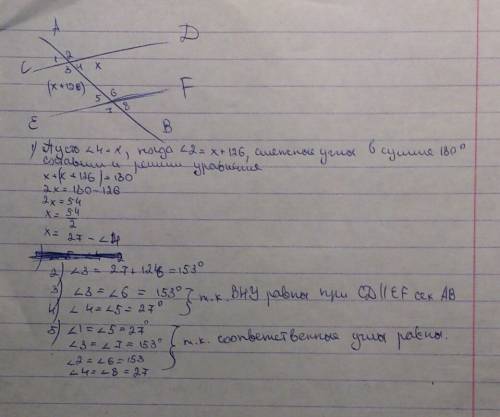 A
D
C
1 2
3 4 x
(x+126)
5 6
7 8
F
E
B
1) Пусть ∠4=x, тогда ∠2=x+126, смежные углы в сумме 180°
составим и решим уравнения
x+(x+126)=180
2x=180-126
2x=54
x= 54/2
x= 27 - ∠4
2) ∠3= 27+126=153°
3) ∠3=∠6=153°
4) ∠4=∠5=27° } т.к. ВНУ равны при CD||EF сек AB
5) ∠1=∠5=27°
∠3=∠7=153° } т.к. соответственные углы равны.
∠2=∠6=153
∠4=∠8=27